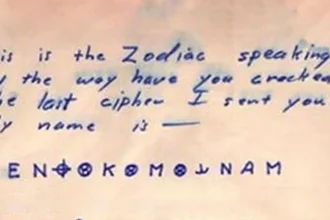 is is the Zodiac speaking
the way have you cracked
last cipher I sent you
name is —
E N ⌖ ⊗ K ⊗ M ⊗ ⅃ N A M